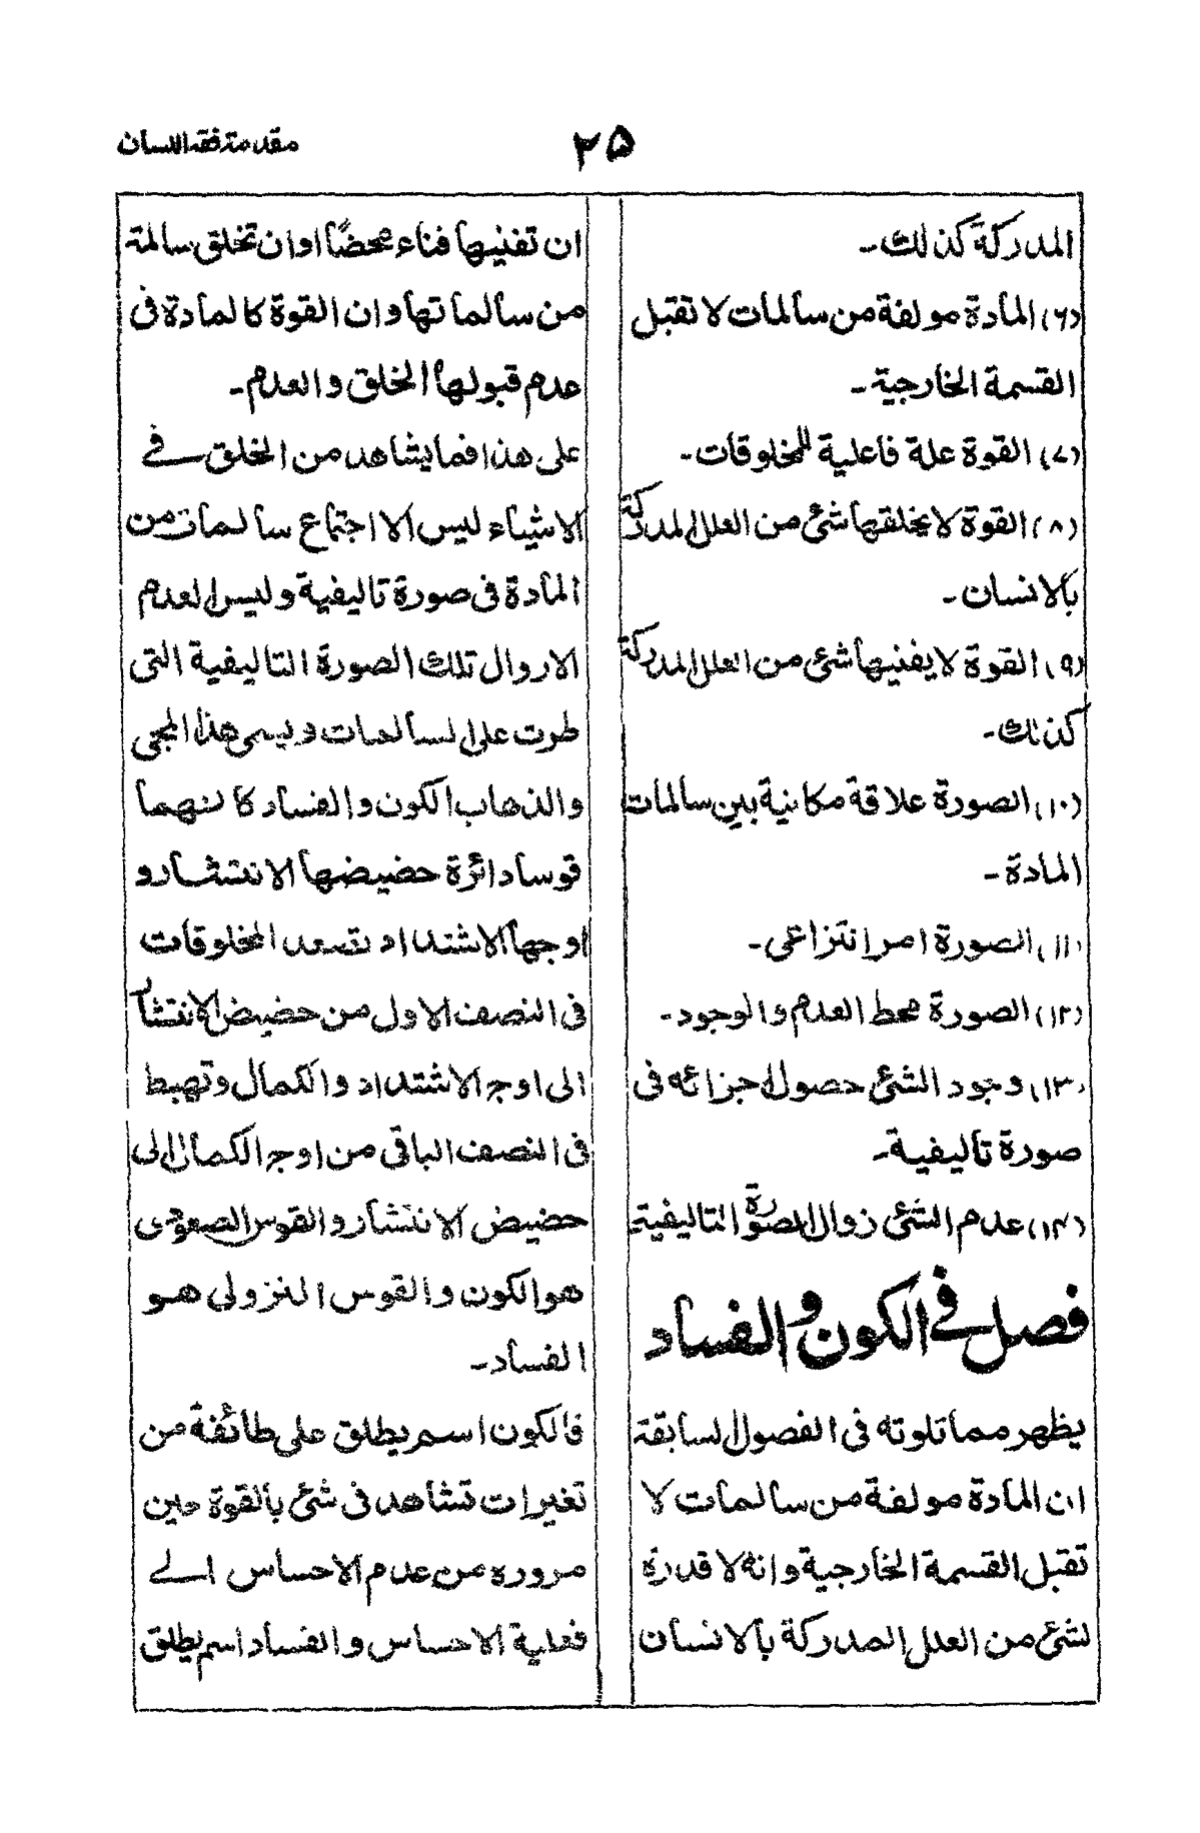 مقدمة فقه اللسان
٢٥
المدركة كذلك۔
(٦) المادة مولفة من سالمات لا تقبل
القسمة الخارجية۔
(٧) القوة علة فاعلية للمخلوقات۔
(٨) القوة لا يخلقها شئ من العلل المدركة
بالانسان۔
(٩) القوة لا يفنيها شئ من العلل المدركة
كذلك۔
(١٠) الصورة علاقة مكانية بين سالمات
المادة۔
(١١) الصورة امر انتزاعى۔
(١٢) الصورة محط العدم والوجود۔
(١٣) وجود الشئ حصول اجزائه فى
صورة تاليفية۔
(١٤) عدم الشئ زوال الصورة التاليفية
فصل فى الكون والفساد
يظهر مما تلوته فى الفصول السابقة
ان المادة مولفة من سالمات لا
تقبل القسمة الخارجية وانه لا قدرة
لشئ من العلل المدركة بالانسان
ان تفنيها فناء محضًا او ان تخلق سالمة
من سالماتها وان القوة كالمادة فى
عدم قبولها الخلق والعدم۔
على هذا فما يشاهد من الخلق فى
الاشياء ليس الا اجتماع سالمات من
المادة فى صورة تاليفية وليس العدم
الا زوال تلك الصورة التاليفية التى
طرت على السالمات ويسمى هذا المجى
والذهاب الكون والفساد كانهما
قوسا دائرة حضيضها الانتشار و
اوجها الاشتداد تصعد المخلوقات
فى النصف الاول من حضيض الانتشار
الى اوج الاشتداد والكمال وتهبط
فى النصف الباقى من اوج الكمال الى
حضيض الانتشار والقوس الصعودى
هو الكون والقوس النزولى هو
الفساد۔
فالكون اسم يطلق على طائفة من
تغيرات تشاهد فى شئ بالقوة حين
مروره من عدم الاحساس الى
فعلية الاحساس والفساد اسم يطلق